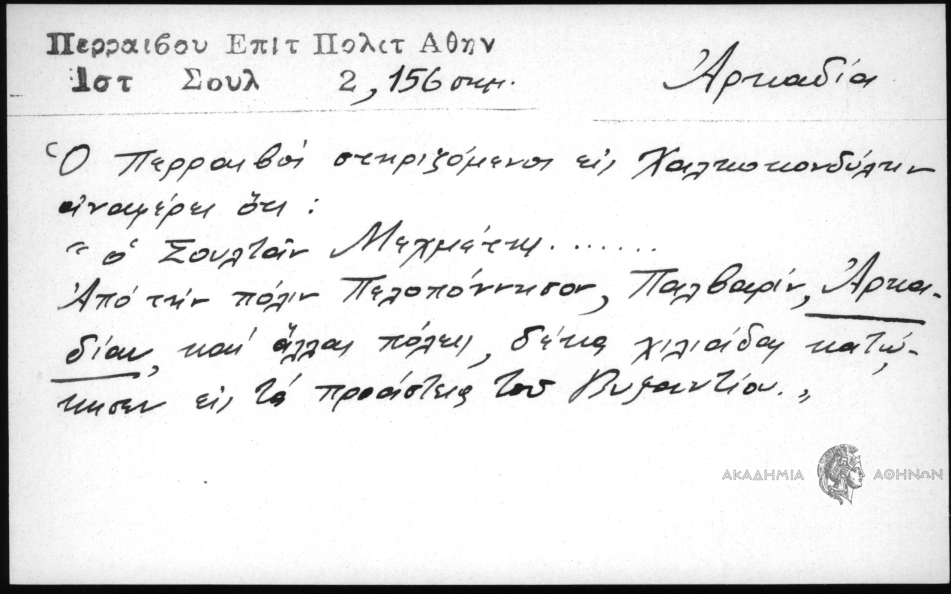 Περραιβου Επιτ Πολιτ Αθην
Ἀρκαδία
1στ Σουλ 2, 156 σημ.
Ὁ Περραιβός στηριζόμενος εἰς Χαλκοκονδύλην
ἀναφέρει ὅτι :
" ὁ Σουλτάν Μεχμέτης.......
Ἀπό τήν πόλιν Πελοπόννησον, Παλβαρίν, Ἀρκα-
δίαν, καί ἄλλας πόλεις, δέκα χιλιάδας κατώ-
κησεν εἰς τά προάστεια τοῦ Βυζαντίου.„
ΑΚΑΔΗΜΙΑ ΑΘΗΝΩΝ